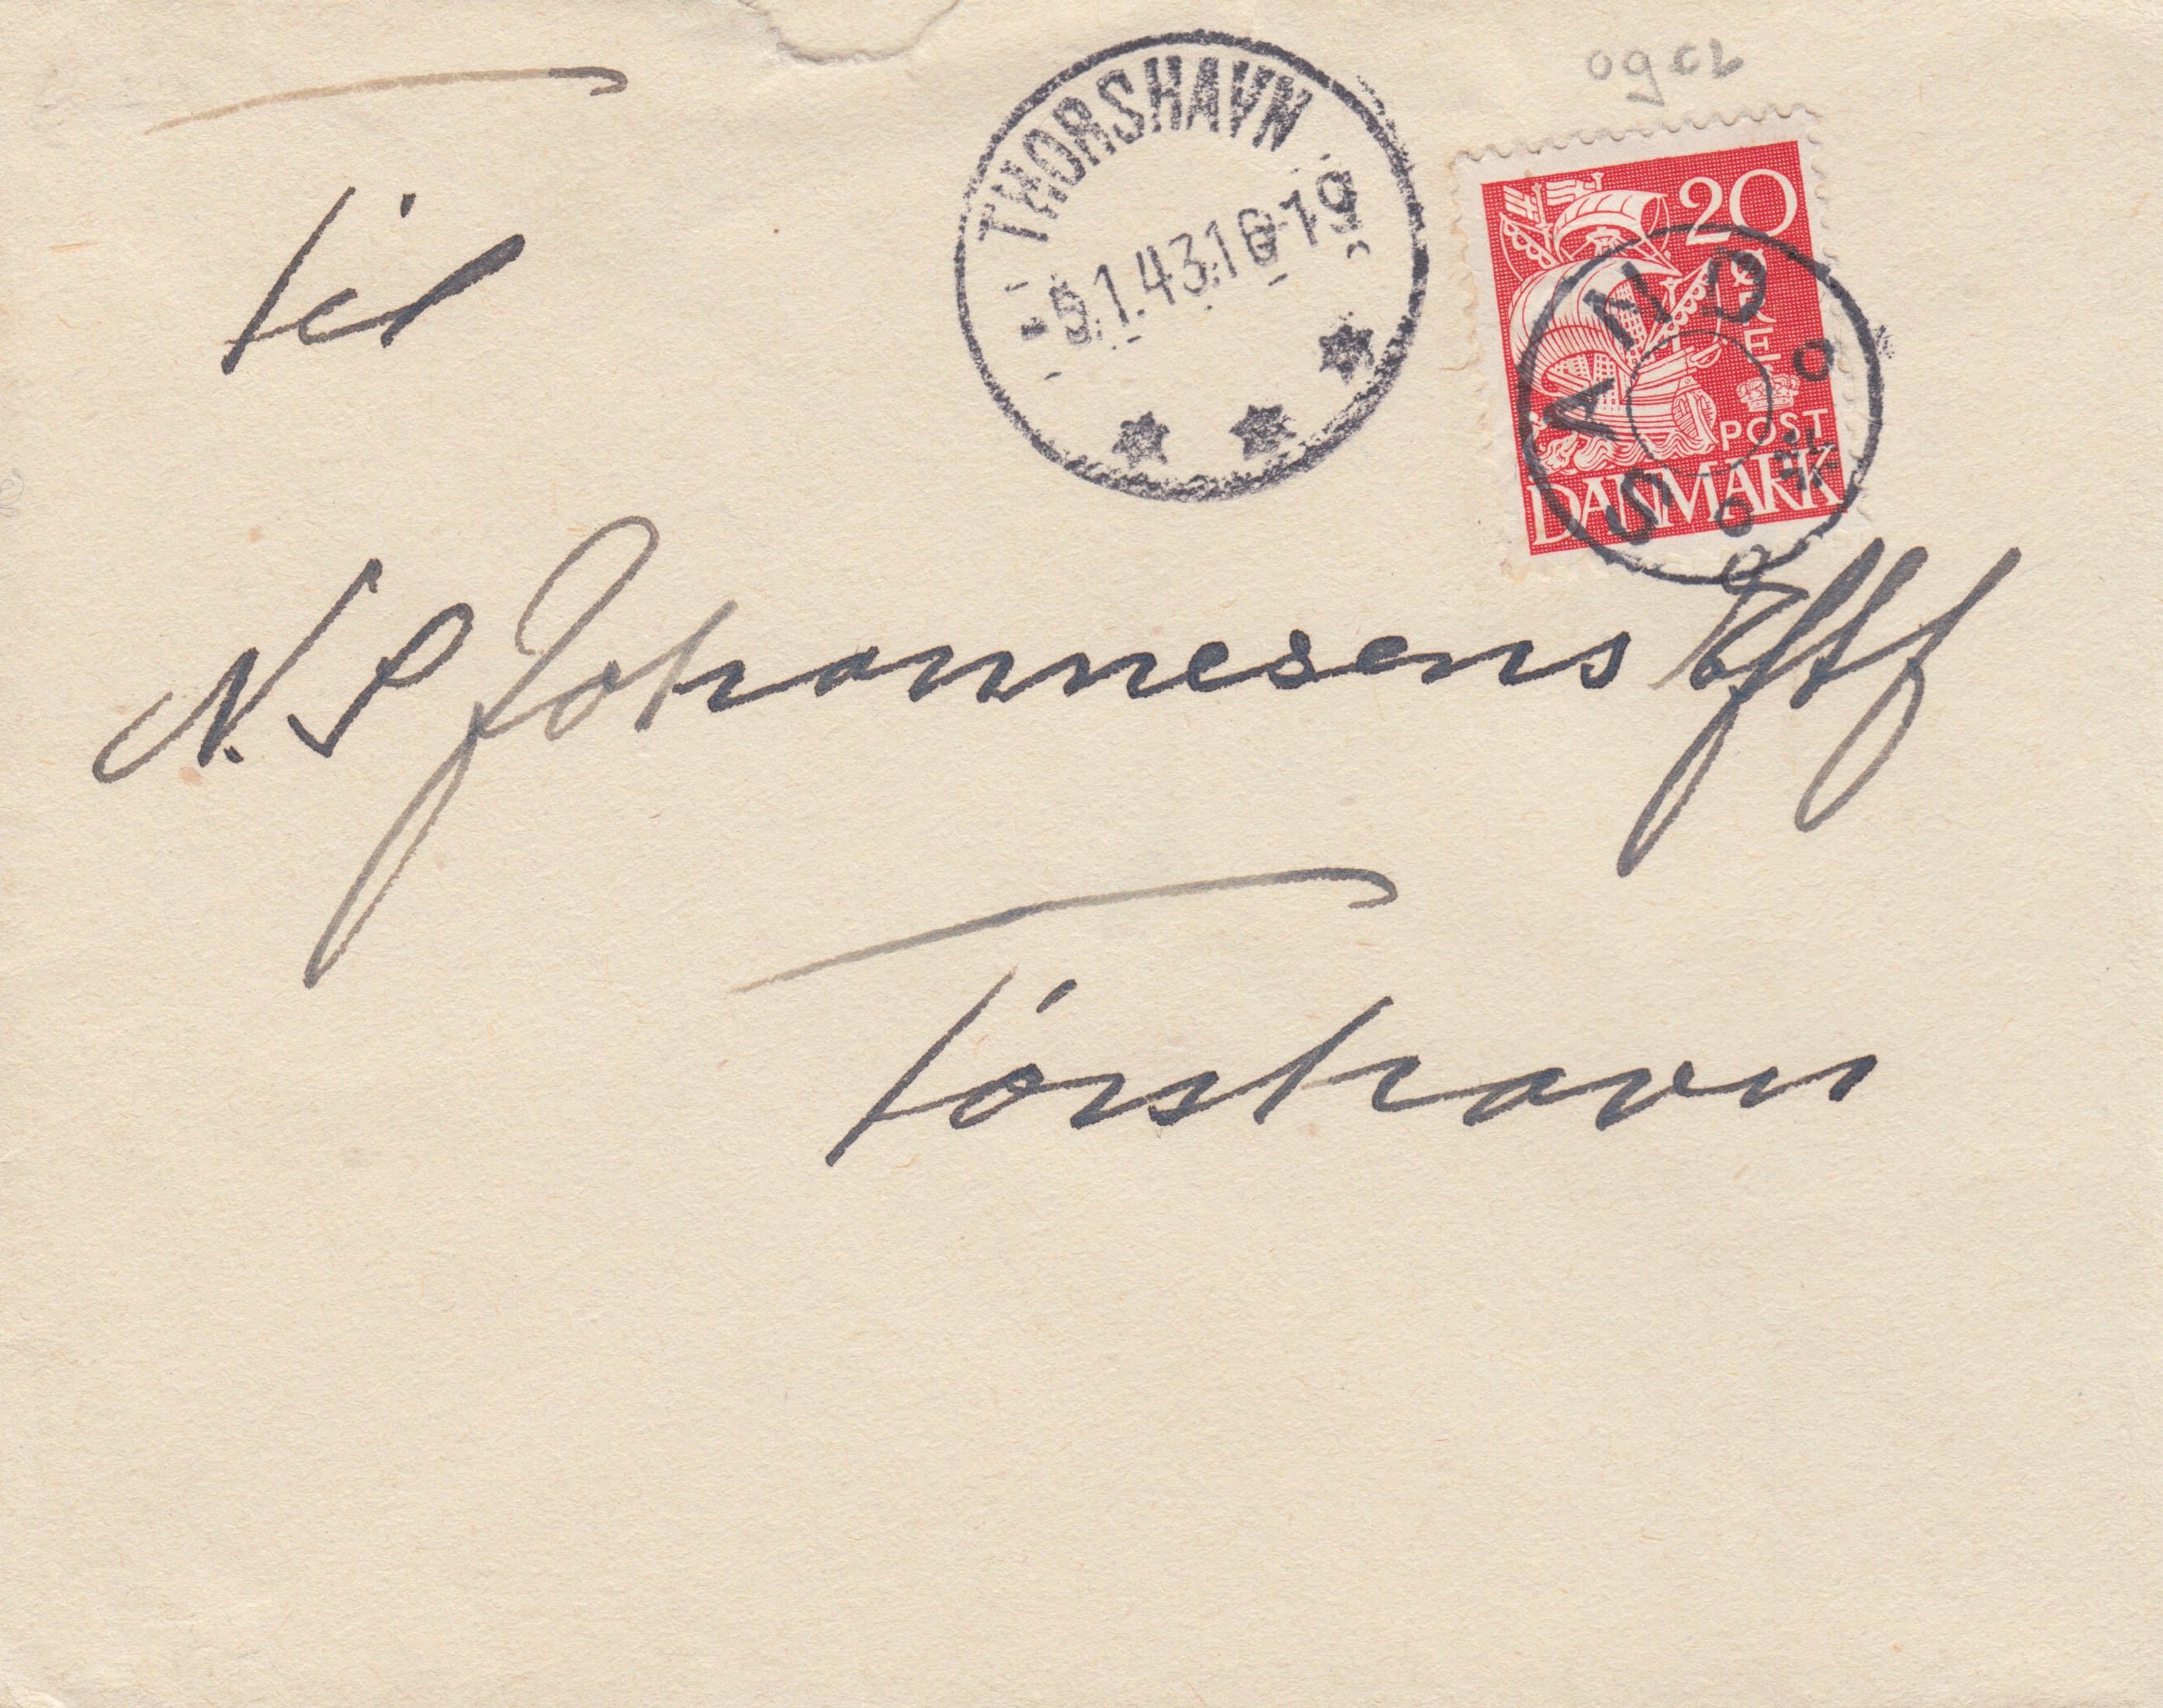 ogcb
THORSHAVN
-5.1.43.18-19
20
ØRE
POST
DANMARK
SAND
Til
N. S Johannesens Eftf
Tórshavn